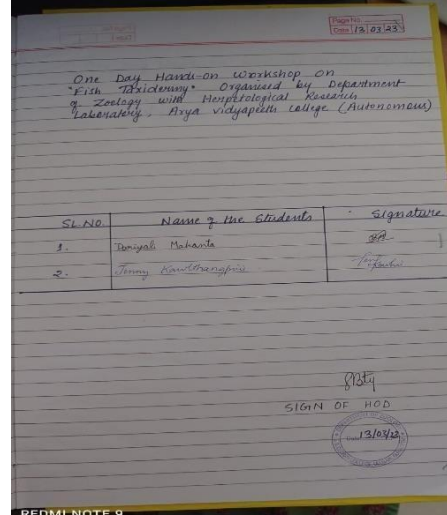 Page No.
Date 13 03 23
One Day Hands-on Workshop on
"Fish Taxidermy" Organised by Department
of Zoology with Herpetological Research
Laboratory, Arya Vidyapeeth College (Autonomous)
SL.NO. Name of the Students Signature
1. Mahanta
2. Jenny
SIGN OF HOD
13/03/23
REDMI NOTE 9